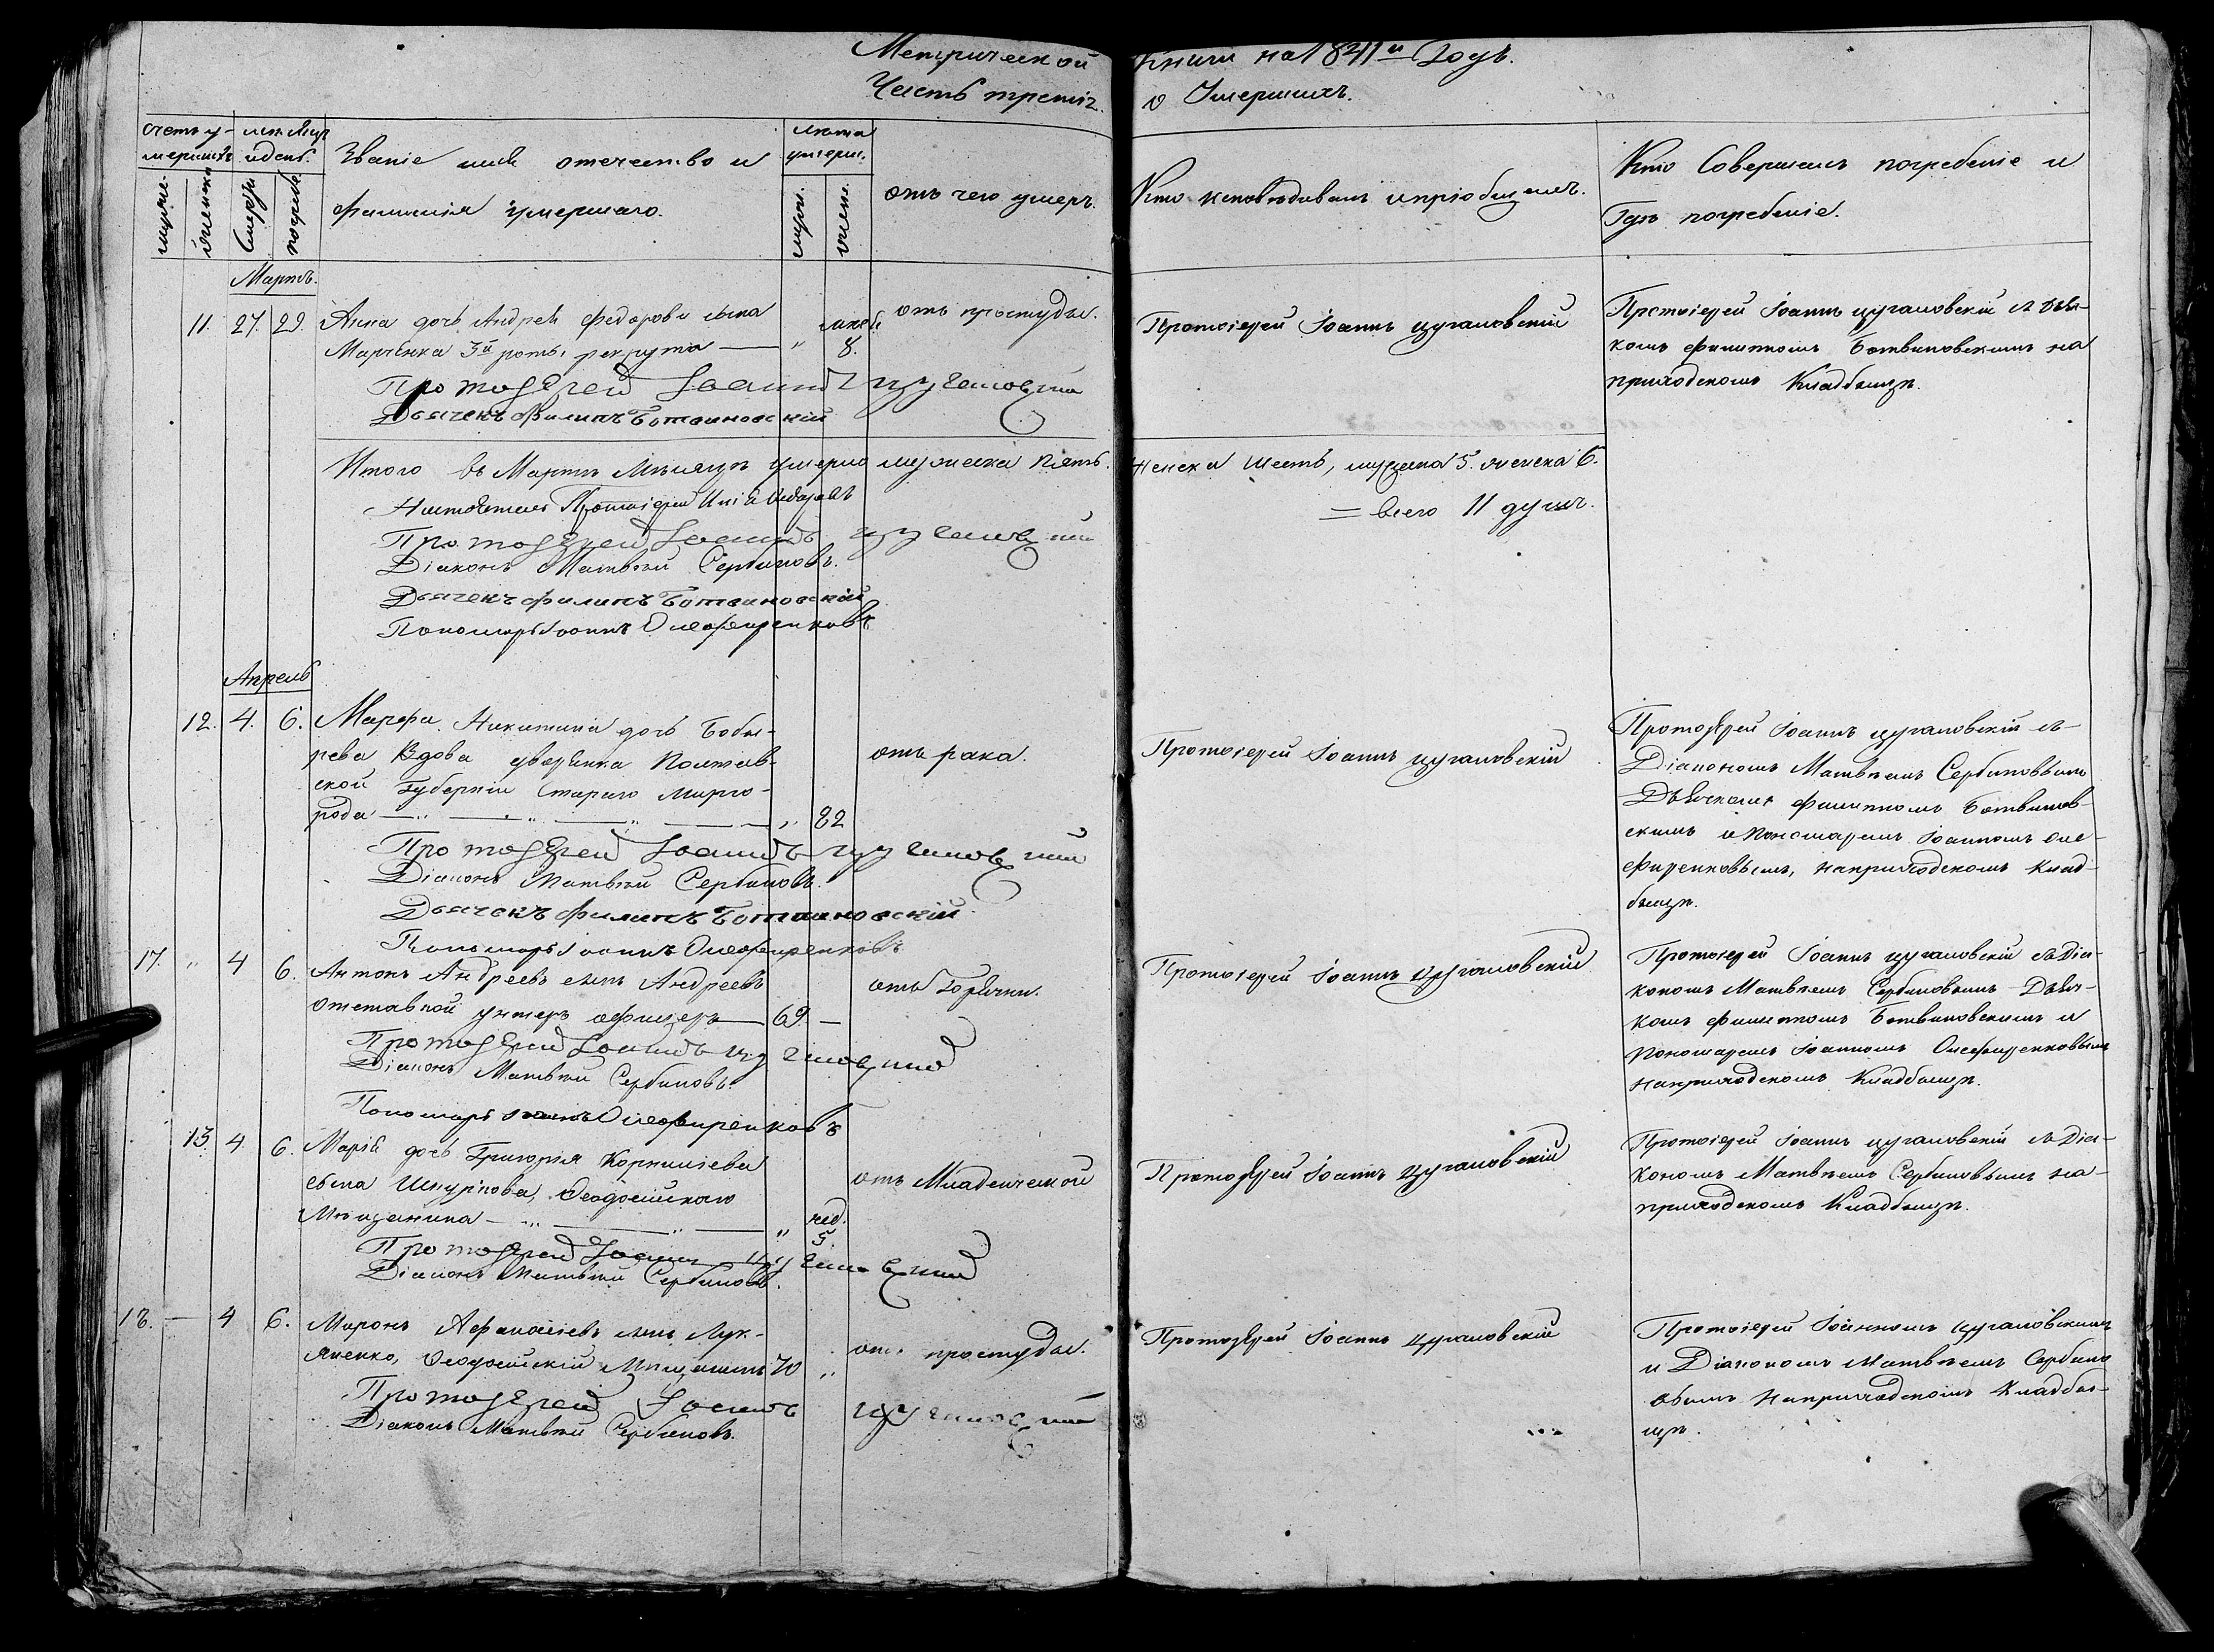 Метрической
Часть третія.
Книги на 1841й Годъ.
о Умершихъ.
счетъ у-
мершихъ
мужеска.
женска
мѣсяцъ
и день.
смерти
погребе.
Званіе имя отечество и
Фамилія умершаго.
лѣта
умерш.
муж.
жен.
отъ чего умеръ.
Кто исповѣдывалъ и пріобщалъ.
Кто Совершалъ погребеніе и
Гдѣ погребеніе.
Мартъ.
11. 27. 29. Анна дочь Андрея Федорова сына
Марченка 3й роты рекрута — „ 8.
отъ простуды.
Протоіерей Іоаннъ Цугаловскій
Дьячекъ Филипъ Ботвиновскій
Протоіерей Іоаннъ Цугаловскій
Протоіерей Іоаннъ Цугаловскій съ Дья-
комъ Филиппомъ Ботвиновскимъ на
приходскомъ Кладбищѣ.
Итого въ Мартѣ Мѣсяцѣ умерло мужеска пять.
женска шесть, мужеска 5. женска 6.
= всего 11 душъ.
Протоіерей
Протоіерей Іоаннъ Цугаловскій
Діаконъ Матвѣй Сербиновъ.
Дьячекъ Филипъ Ботвиновскій
Пономарь Іоаннъ Олефиренковъ
Апрель
12. 4. 6. Марфа Никитина дочь Бобы-
рева Вдова дворянка Полтав-
ской Губерніи Стараго Мирго-
рода — „ — „ — „ 82
отъ рака.
Протоіерей Іоаннъ Цугаловскій
Діаконъ Матвѣй Сербиновъ.
Дьячекъ Филипъ Ботвиновскій.
Пономарь Іоаннъ Олефиренковъ
Протоіерей Іоаннъ Цугаловскій
Протоіерей Іоаннъ Цугаловскій съ
Діакономъ Матвѣемъ Сербиновымъ
Дьячкомъ Филиппомъ Ботвинов-
скимъ и Пономаремъ Іоанномъ Оле-
фиренковымъ, на приходскомъ Клад-
бищѣ.
17. „ 4 6. Антонъ Андреевъ сынъ Андреевъ
отставной унтеръ офицеръ — 69. —
отъ Горячки.
Протоіерей Іоаннъ Цугаловскій
Діаконъ Матвѣй Сербиновъ.
Пономарь Іоаннъ Олефиренковъ
Протоіерей Іоаннъ Цугаловскій
Протоіерей Іоаннъ Цугаловскій съ Діа-
кономъ Матвѣемъ Сербиновымъ Дьяч-
комъ Филиппомъ Ботвиновскимъ и
Пономаремъ Іоанномъ Олефиренковымъ
на приходскомъ Кладбищѣ.
13. 4. 6. Марія дочь Григорія Корниліева
сына Шкуркова, Ѳеодосійскаго
Мѣщанина — „ — „ — „ нед.
5.
отъ Младенческой
Протоіерей Іоаннъ Цугаловскій
Діаконъ Матвѣй Сербиновъ.
Протоіерей Іоаннъ Цугаловскій
Протоіерей Іоаннъ Цугаловскій съ Діа-
кономъ Матвѣемъ Сербиновымъ на-
приходскомъ Кладбищѣ.
18. — 4 6. Миронъ Афанасіевъ сынъ Лук-
яненко, Ѳеодосійскій Мѣщанинъ 70 „
отъ простуды.
Протоіерей Іоаннъ Цугаловскій
Діаконъ Матвѣй Сербиновъ.
Протоіерей Іоаннъ Цугаловскій
Протоіерей Іоанномъ Цугаловскимъ
и Діакономъ Матвѣемъ Сербино
вымъ на приходскомъ Кладби-
щѣ.